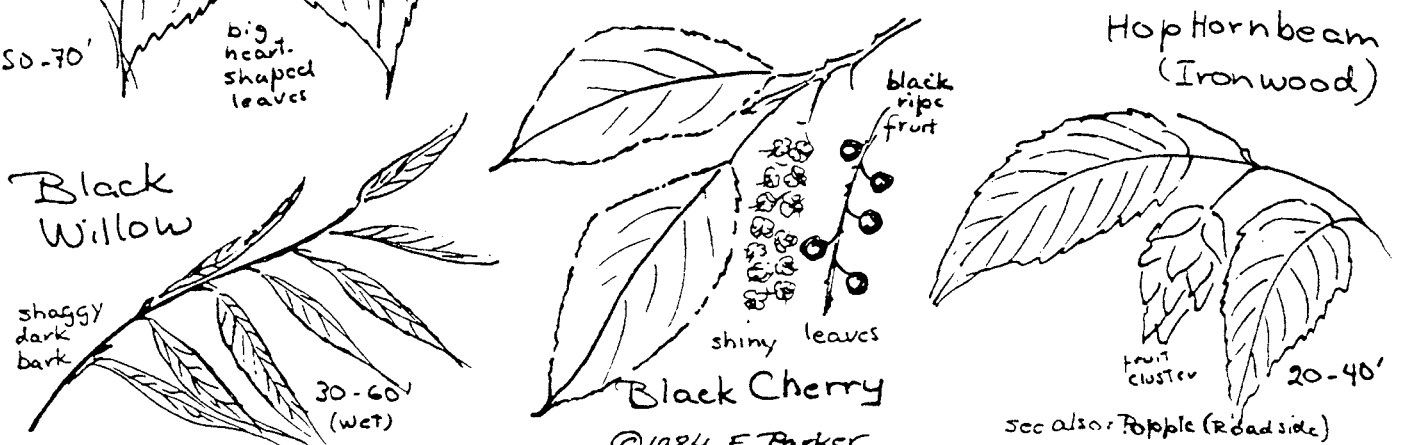 50-70'
big
heart-
shaped
leaves
Black
Willow
shaggy
dark
bark
30-60'
(wet)
black
ripe
fruit
shiny leaves
Black Cherry
©1984 E. Parker
Hop Hornbeam
(Ironwood)
fruit
cluster
20-40'
see also: Popple (Roadside)